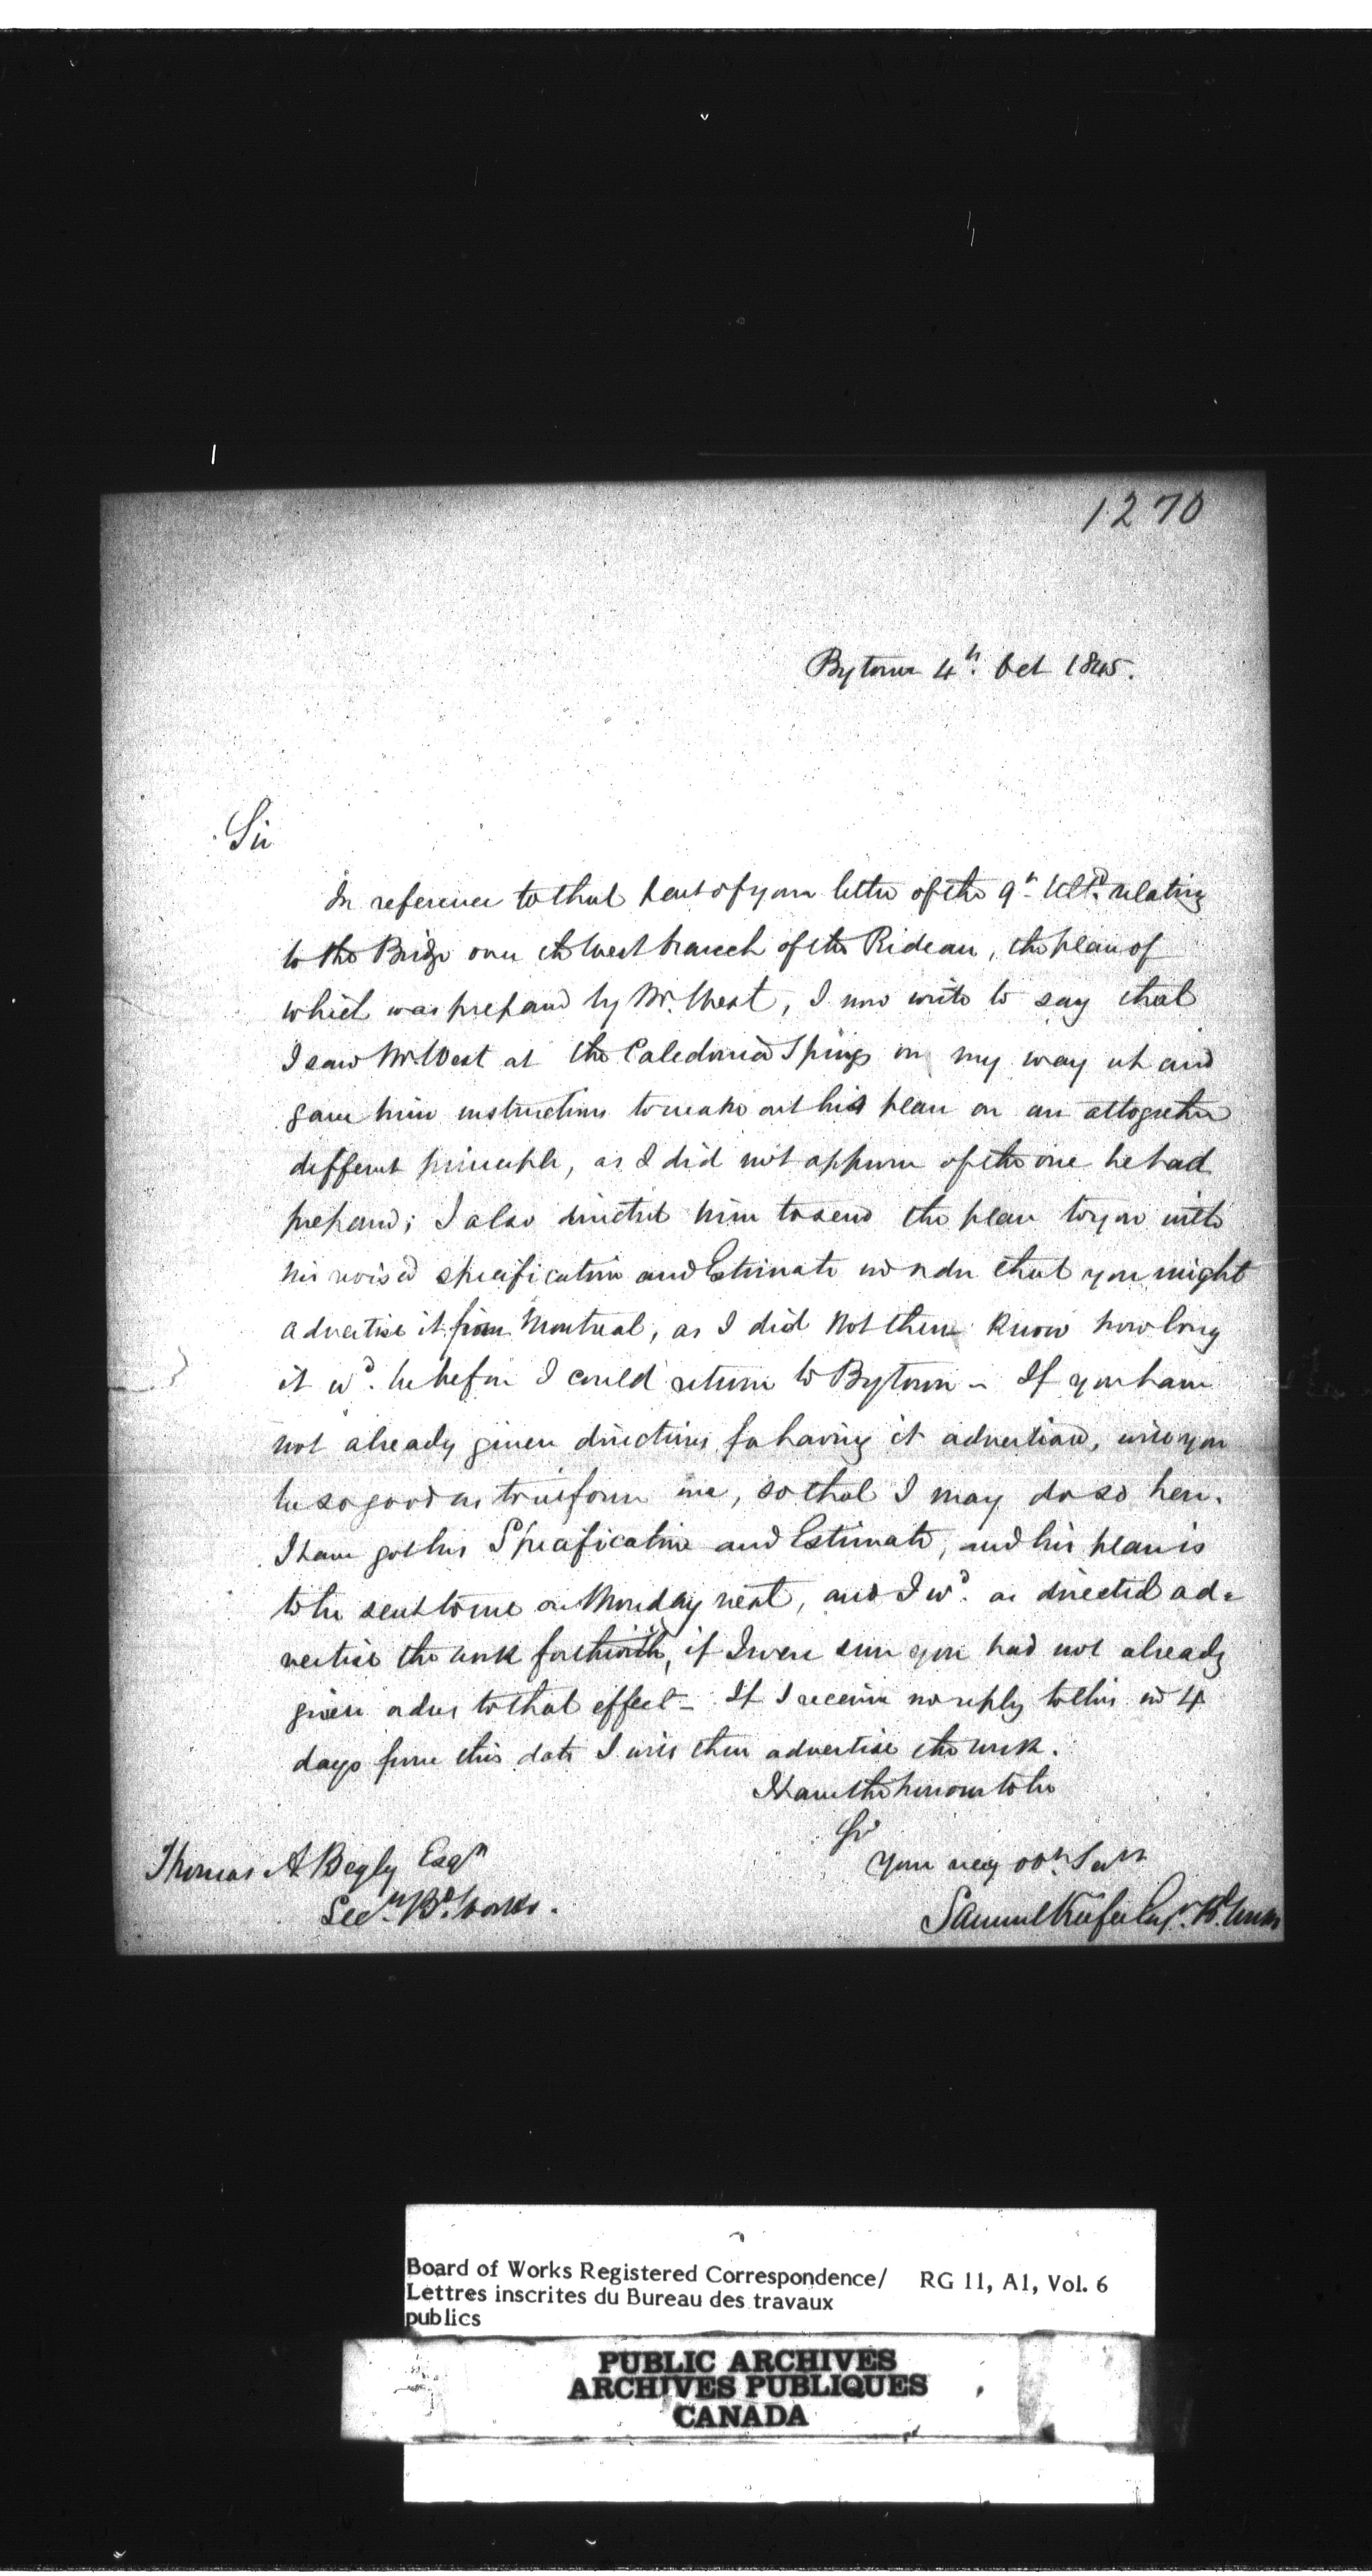 1270
Bytown 4th. Oct 1845.
Sir
In reference to that part of your letter of the 9th Ulto. relating
to the Bridge over the West branch of the Rideau, the plan of
which was prepared by Mr. West, I now write to say that
I saw Mr. West at the Caledonia Springs on my way up and
gave him instructions to make out his plan on an altogether
different principle, as I did not approve of the one he had
prepared; I also directed him to send the plan to you with
his revised specification and Estimate in order that you might
advertise it from Montreal, as I did not then know how long
it wd. be before I could return to Bytown - If you have
not already given directions for having it advertised, will you
be so good as to inform me, so that I may do so here.
I have got his Specification and Estimate, and his plan is
to be sent to me on Monday next, and I wd. as directed ad=
vertise the work forthwith, if I were sure you had not already
given orders to that effect - If I receive no reply to this in 4
days from this date I will then advertise the work.
I have the honour to be
Sir
Your very obt. Servt.
Thomas A Begly Esqr
Secy. Bd. Works.
Samuel Keefer Engr. Bd. Works
Board of Works Registered Correspondence/ RG 11, A1, Vol. 6
Lettres inscrites du Bureau des travaux
publics
PUBLIC ARCHIVES
ARCHIVES PUBLIQUES
CANADA